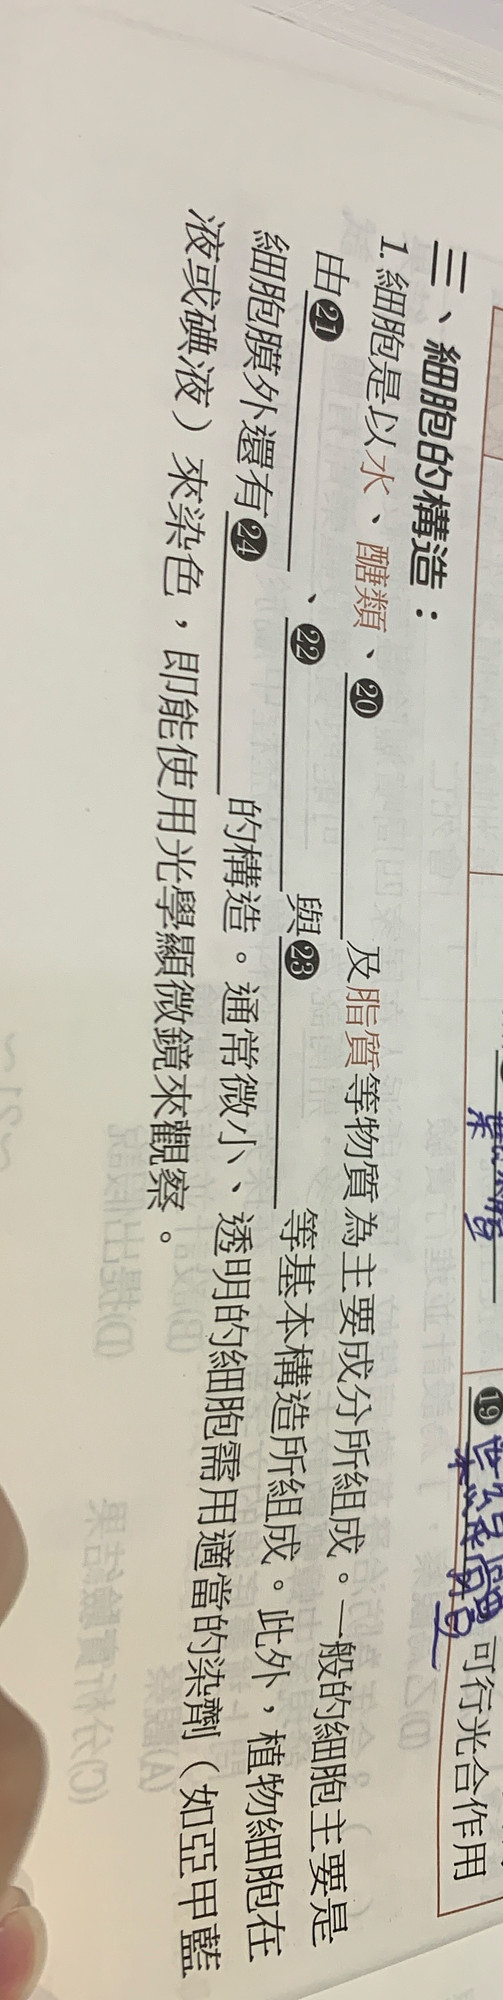 葉脈
⑲ 葉綠體 可行光合作用
三、細胞的構造：
1. 細胞是以水、醣類、⑳________及脂質等物質為主要成分所組成。一般的細胞主要是
由㉑________、㉒________與㉓________等基本構造所組成。此外，植物細胞在
細胞膜外還有㉔________的構造。通常微小、透明的細胞需用適當的染劑（如亞甲藍
液或碘液）來染色，即能使用光學顯微鏡來觀察。